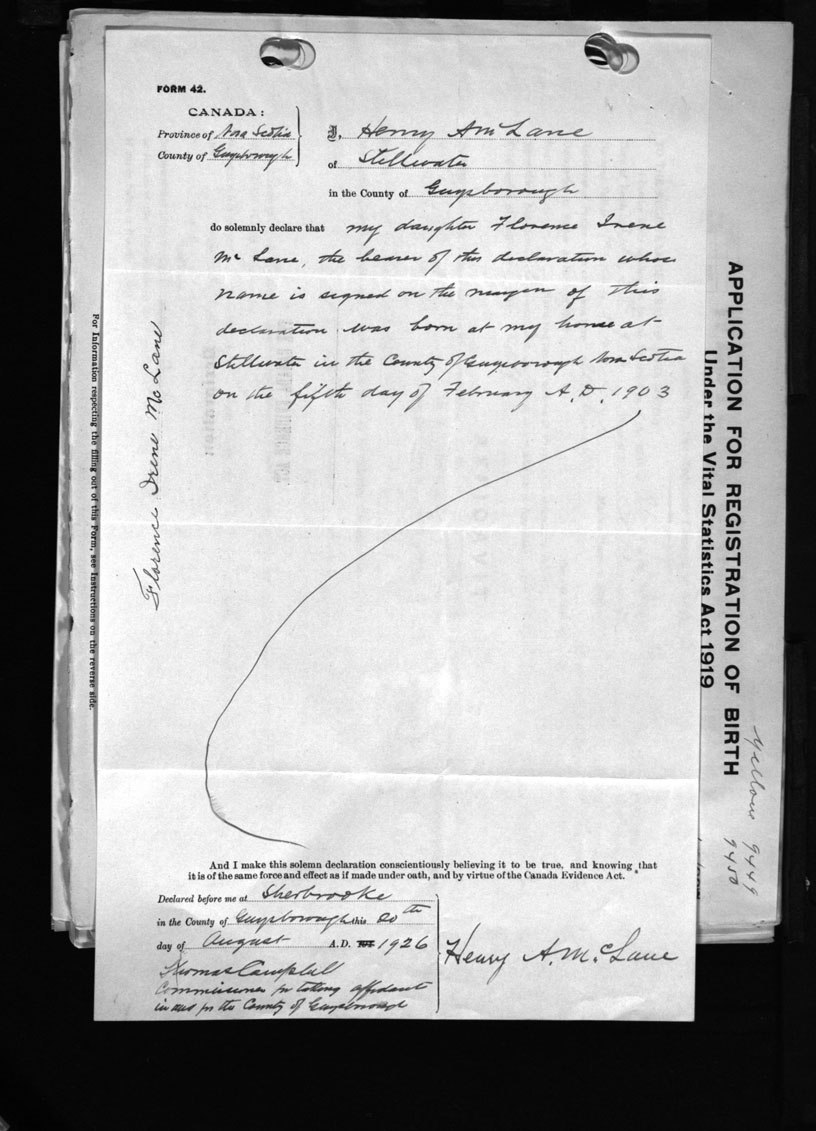 FORM 42.
CANADA:
Province of Nova Scotia
County of Guysborough
I, Henry A Mc Lane
of Stillwater
in the County of Guysborough
do solemnly declare that my daughter Florence Irene
Mc Lane, the bearer of this declaration whose
name is signed on the margen of this
declaration was born at my house at
Stillwater in the County of Guysborough Nova Scotia
on the fifth day of February A.D. 1903
Florence Irene Mc Lane
For Information respecting the filling out of this Form, see Instructions on the reverse side.
And I make this solemn declaration conscientiously believing it to be true, and knowing that
it is of the same force and effect as if made under oath, and by virtue of the Canada Evidence Act.
Declared before me at Sherbrooke
in the County of Guysborough this 20th
day of August A.D. 1926
Thomas Campbell
Commissioner for taking affidavits
in and for the County of Guysborough
Henry A. Mc Lane
APPLICATION FOR REGISTRATION OF BIRTH
Under the Vital Statistics Act 1919
Yellow 9449
9450